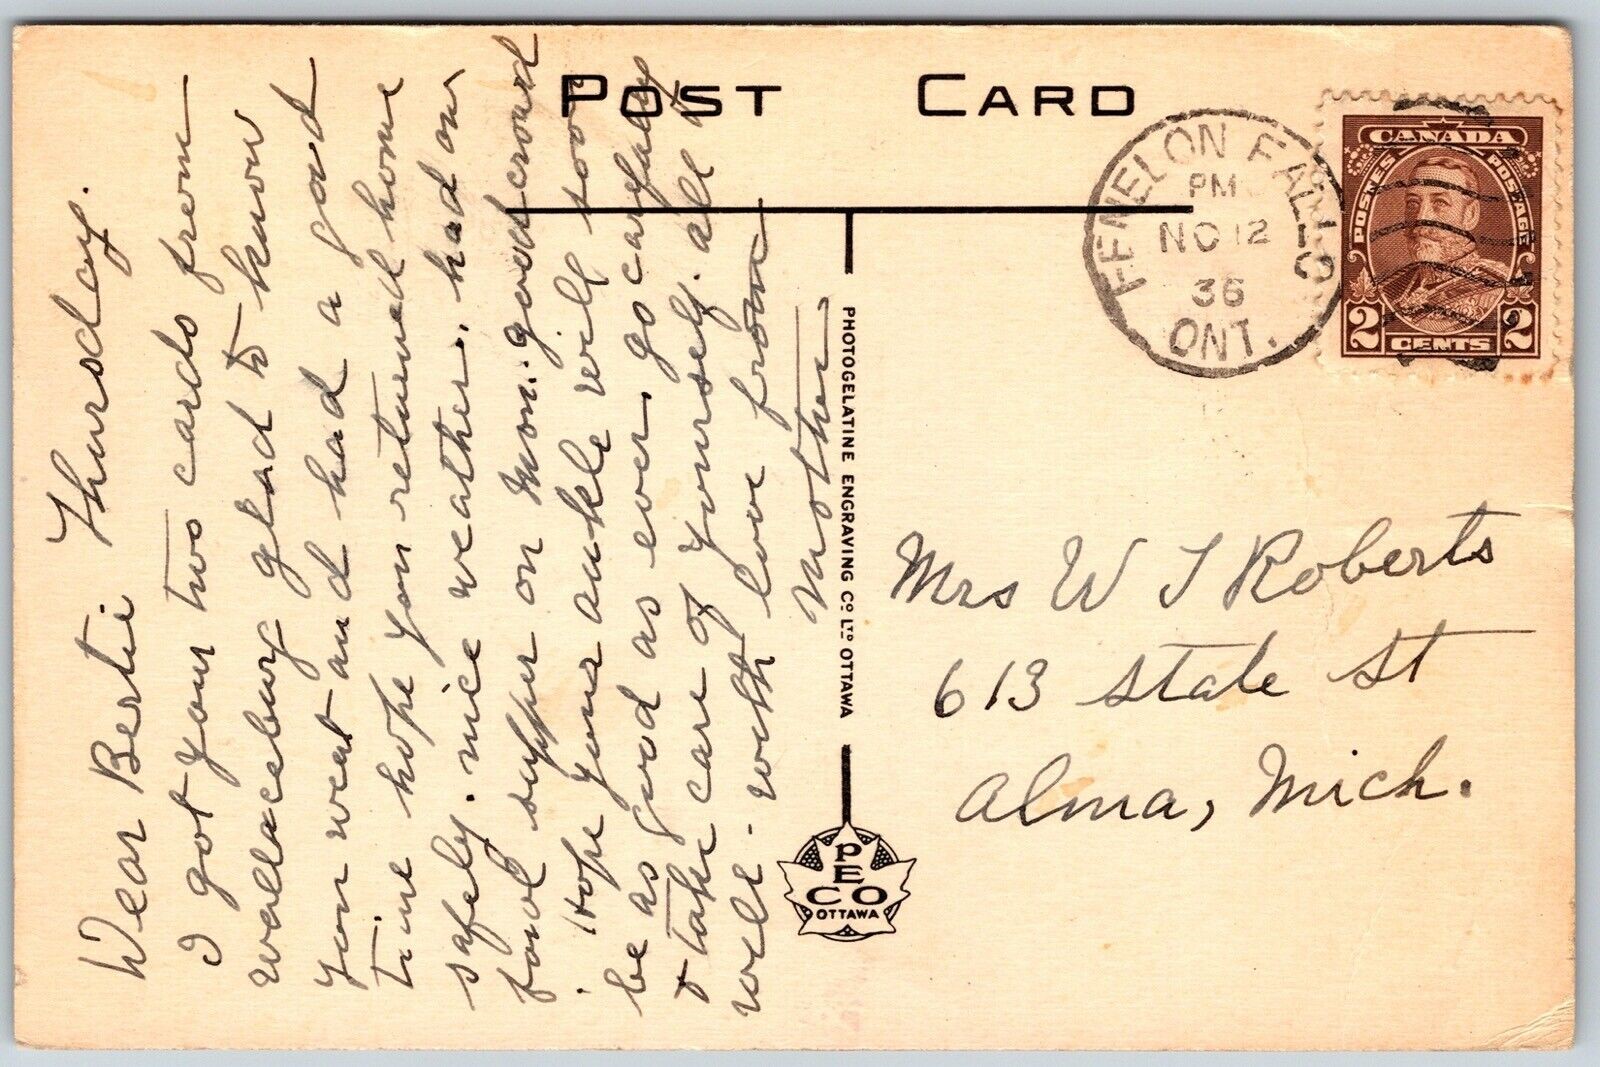 POST CARD
FENELON FALLS
PM
NO 12
36
ONT.
CANADA
POSTES POSTAGE
2 CENTS 2
Dear Bertie Thursday.
I got your two cards from
Wallaceburg glad to know
you went and had a good
time hope you returned home
safely. nice weather. had our
fowl supper on Mon. good crowd
. Hope your ankle will soon
be as good as ever, go carefully
& take care of yourself. all
well - with love from
Mother
PHOTOGELATINE ENGRAVING CO LTD OTTAWA
PECO
OTTAWA
Mrs W J Roberts
613 State St
Alma, Mich.